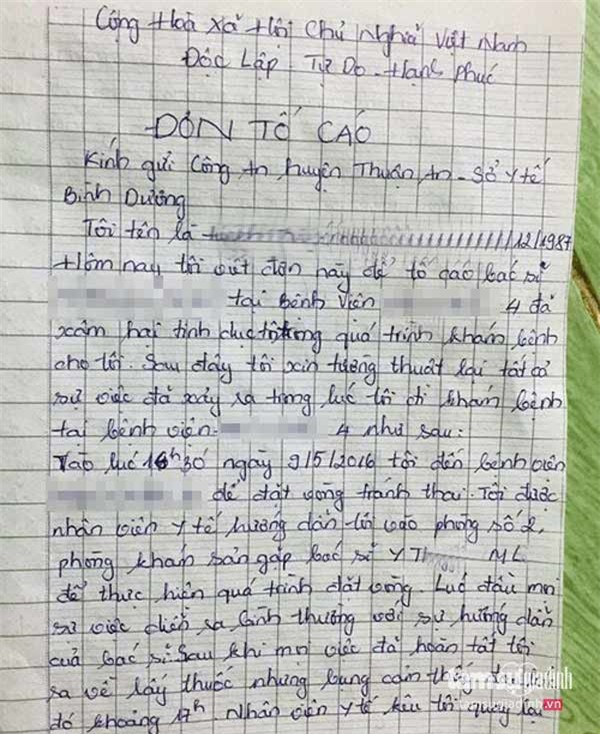 Cộng Hoà Xã Hội Chủ Nghĩa Việt Nam
Độc Lập - Tự Do - Hạnh Phúc
ĐƠN TỐ CÁO
Kính gửi Công An huyện Thuận An - Sở Y tế
Bình Dương
Tôi tên là /12/1987
Hôm nay tôi viết đơn này để tố cáo bác sĩ
tại Bệnh Viện 4 đã
xâm hại tình dục tôi trong quá trình khám bệnh
cho tôi. Sau đây tôi xin tường thuật lại tất cả
sự việc đã xảy ra trong lúc tôi đi khám bệnh
tại bệnh viện 4 như sau:
Vào lúc 16h30 ngày 9/5/2016 tôi đến bệnh viện
để đặt vòng tránh thai. Tôi được
nhân viên y tế hướng dẫn tôi vào phòng số 2,
phòng khám sản gặp bác sĩ Y Th ML
để thực hiện quá trình đặt vòng. Lúc đầu mọi
sự việc diễn ra bình thường với sự hướng dẫn
của bác sĩ. Sau khi mọi việc đã hoàn tất tôi
ra về lấy thuốc nhưng bụng cảm thấy
đó khoảng 17h. Nhân viên y tế kêu tôi quay lại